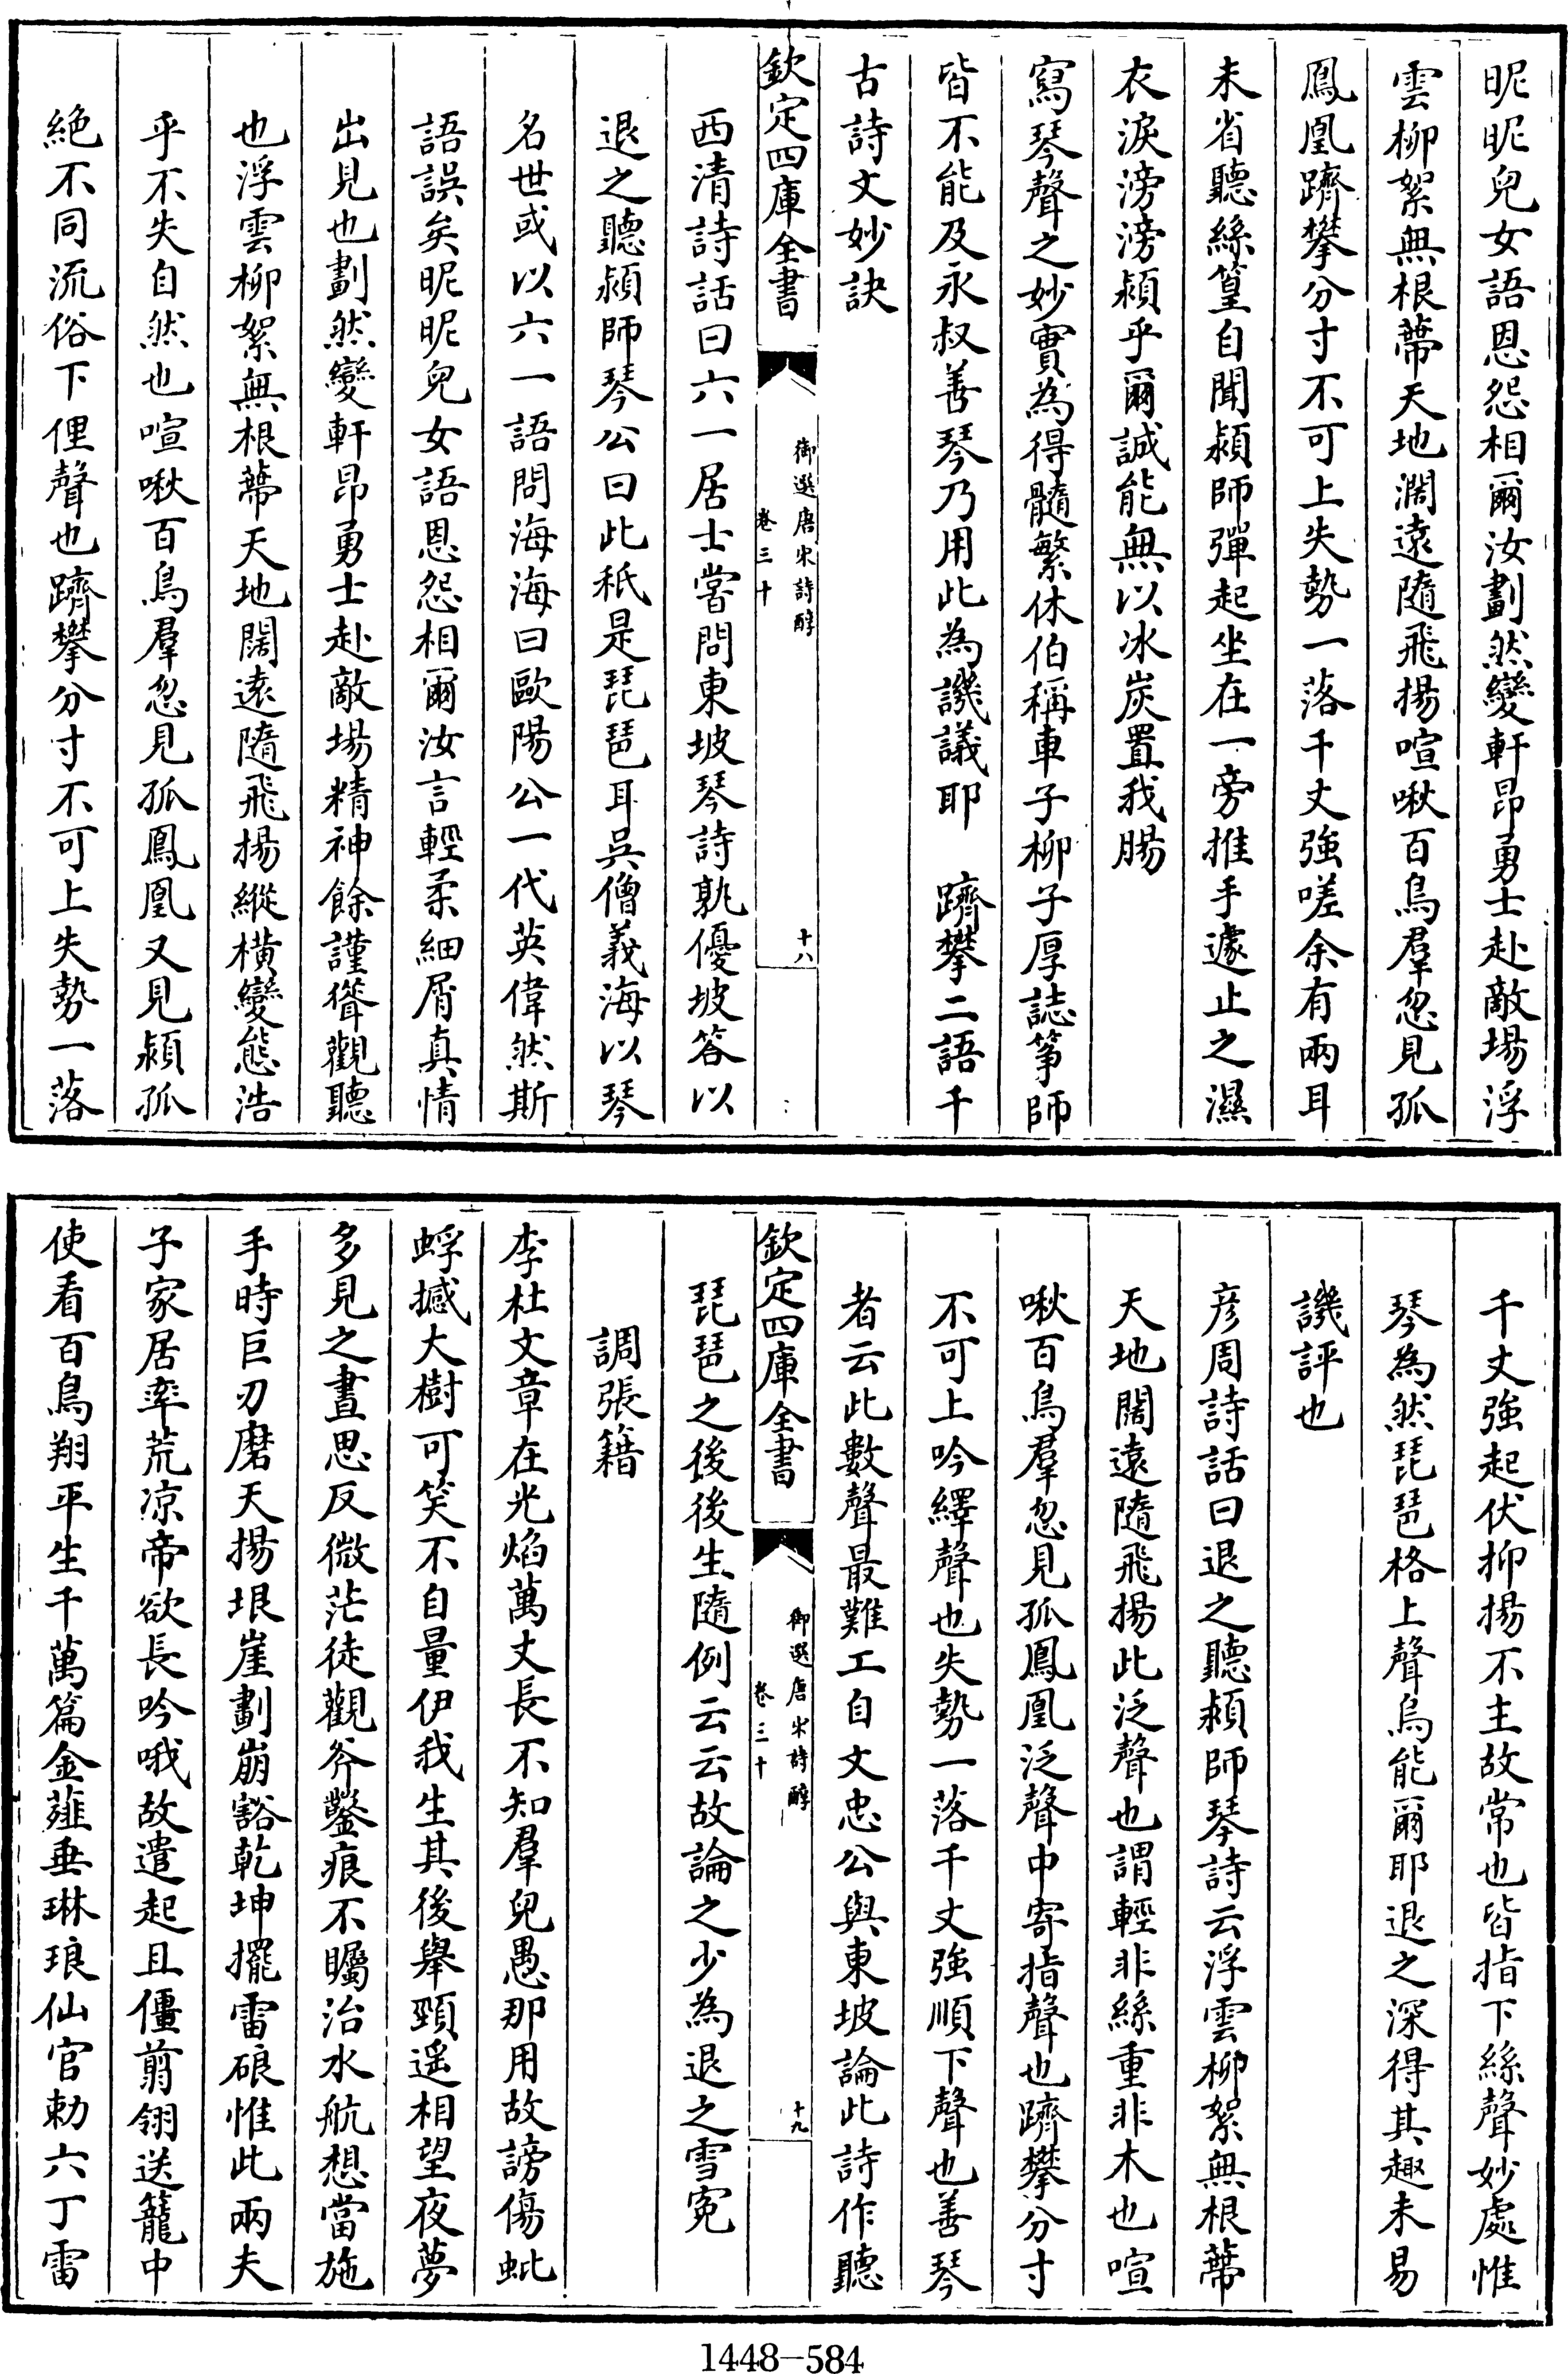 昵昵兒女語恩怨相爾汝劃然變軒昂勇士赴敵場浮
雲柳絮無根蔕天地濶遠隨飛揚喧啾百鳥羣忽見孤
鳳凰躋攀分寸不可上失勢一落千丈強嗟余有兩耳
未省聽絲篁自聞潁師彈起坐在一旁推手遽止之濕
衣淚滂滂潁乎爾誠能無以冰炭置我腸
寫琴聲之妙實為得髓繁休伯稱車子柳子厚誌筝師
皆不能及永叔善琴乃用此為譏議耶　躋攀二語千
古詩文妙訣
欽定四庫全書
御選唐宋詩醇
卷三十
十八
西清詩話曰六一居士嘗問東坡琴詩孰優坡答以
退之聽潁師琴公曰此秖是琵琶耳吳僧義海以琴
名世或以六一語問海海曰歐陽公一代英偉然斯
語誤矣昵昵兒女語恩怨相爾汝言輕柔細屑真情
出見也劃然變軒昂勇士赴敵場精神餘謹聳觀聽
也浮雲柳絮無根蔕天地闊遠隨飛揚縱橫變態浩
乎不失自然也喧啾百鳥羣忽見孤鳳凰又見潁孤
絶不同流俗下俚聲也躋攀分寸不可上失勢一落
千丈強起伏抑揚不主故常也皆指下絲聲妙處惟
琴為然琵琶格上聲烏能爾耶退之深得其趣未易
譏評也
彦周詩話曰退之聽潁師琴詩云浮雲柳絮無根蔕
天地闊遠隨飛揚此泛聲也謂輕非絲重非木也喧
啾百鳥羣忽見孤鳳凰泛聲中寄指聲也躋攀分寸
不可上吟繹聲也失勢一落千丈強順下聲也善琴
者云此數聲最難工自文忠公與東坡論此詩作聽
欽定四庫全書
御選唐宋詩醇
卷三十
十九
琵琶之後後生隨例云云故論之少為退之雪寃
調張籍
李杜文章在光焰萬丈長不知羣兒愚那用故謗傷蚍
蜉撼大樹可笑不自量伊我生其後舉頸遥相望夜夢
多見之晝思反微茫徒觀斧鑿痕不矚治水航想當施
手時巨刃磨天揚垠崖劃崩豁乾坤擺雷硠惟此兩夫
子家居率荒凉帝欲長吟哦故遣起且僵翦翎送籠中
使看百鳥翔平生千萬篇金薤垂琳琅仙官勅六丁雷
1448—584